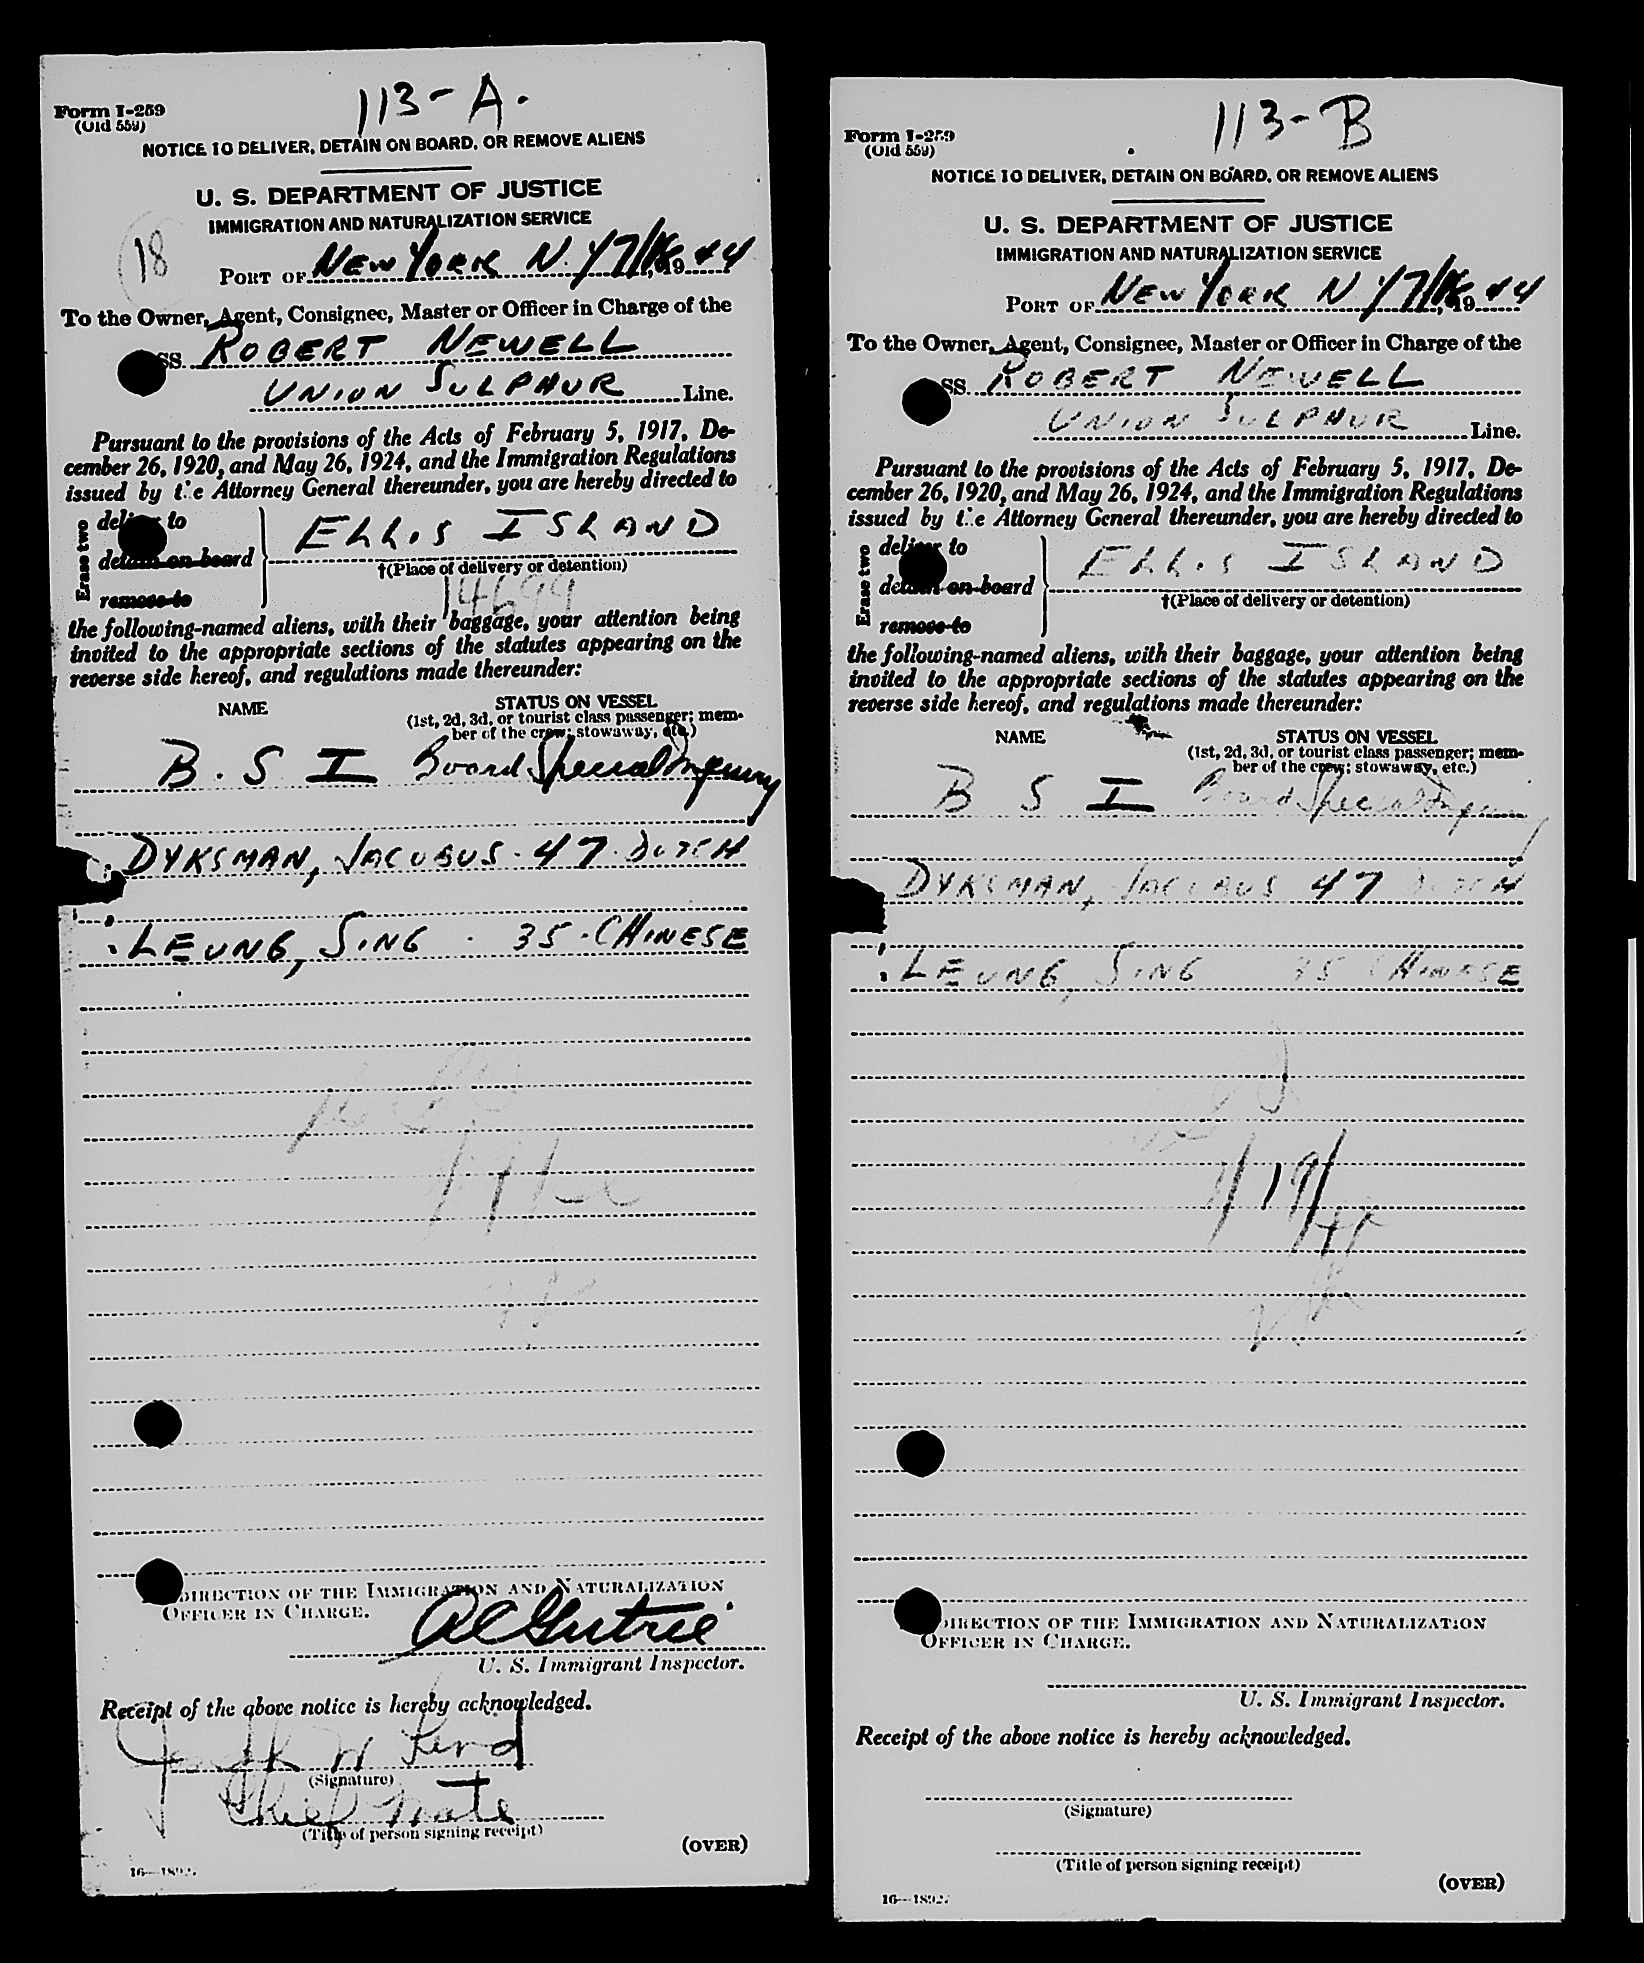 113-A.
Form I-259
(Old 559)
NOTICE TO DELIVER, DETAIN ON BOARD, OR REMOVE ALIENS
U. S. DEPARTMENT OF JUSTICE
IMMIGRATION AND NATURALIZATION SERVICE
18
PORT OF NEW YORK N.Y 7/18, 1944
To the Owner, Agent, Consignee, Master or Officer in Charge of the
SS. ROBERT NEWELL
UNION SULPHUR Line.
Pursuant to the provisions of the Acts of February 5, 1917, De-
cember 26, 1920, and May 26, 1924, and the Immigration Regulations
issued by the Attorney General thereunder, you are hereby directed to
Erase two
deliver to
detain on board
remove to
ELLIS ISLAND
†(Place of delivery or detention)
14699
the following-named aliens, with their baggage, your attention being
invited to the appropriate sections of the statutes appearing on the
reverse side hereof, and regulations made thereunder:
NAME
STATUS ON VESSEL
(1st, 2d, 3d, or tourist class passenger; mem-
ber of the crew; stowaway, etc.)
B. S I Board Special Inquiry
DYKSMAN, JACOBUS. 47. DUTCH
LEUNG, SING. 35. CHINESE
DIRECTION OF THE IMMIGRATION AND NATURALIZATION
OFFICER IN CHARGE.
U. S. Immigrant Inspector.
Receipt of the above notice is hereby acknowledged.
(Signature)
Chief Mate
(Title of person signing receipt)
(OVER)
113-B
Form I-259
(Old 559)
NOTICE TO DELIVER, DETAIN ON BOARD, OR REMOVE ALIENS
U. S. DEPARTMENT OF JUSTICE
IMMIGRATION AND NATURALIZATION SERVICE
PORT OF NEW YORK N Y 7/18, 1944
To the Owner, Agent, Consignee, Master or Officer in Charge of the
SS. ROBERT NEWELL
UNION SULPHUR Line.
Pursuant to the provisions of the Acts of February 5, 1917, De-
cember 26, 1920, and May 26, 1924, and the Immigration Regulations
issued by the Attorney General thereunder, you are hereby directed to
Erase two
deliver to
detain on board
remove to
ELLIS ISLAND
†(Place of delivery or detention)
the following-named aliens, with their baggage, your attention being
invited to the appropriate sections of the statutes appearing on the
reverse side hereof, and regulations made thereunder:
NAME
STATUS ON VESSEL
(1st, 2d, 3d, or tourist class passenger; mem-
ber of the crew; stowaway, etc.)
B S I Board Special Inquiry
DYKSMAN, JACOBUS 47 DUTCH
LEUNG, SING 35 CHINESE
7/19/44
DIRECTION OF THE IMMIGRATION AND NATURALIZATION
OFFICER IN CHARGE.
U. S. Immigrant Inspector.
Receipt of the above notice is hereby acknowledged.
(Signature)
(Title of person signing receipt)
(OVER)